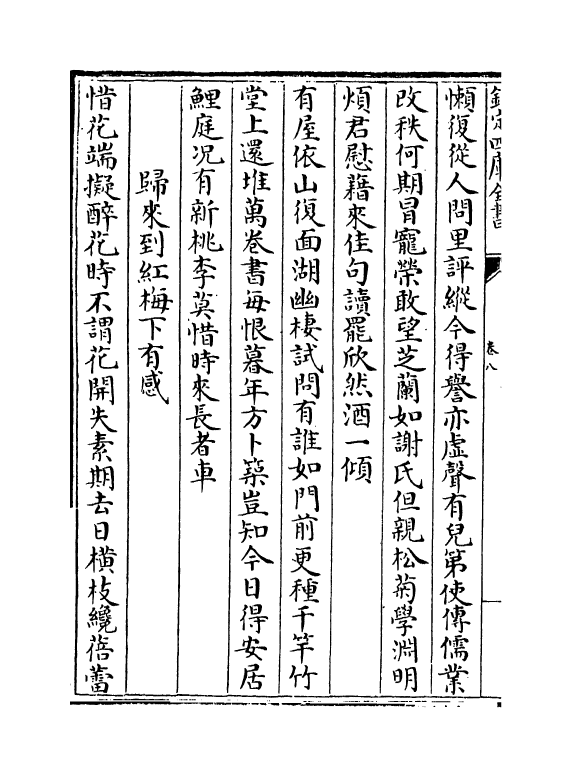 欽定四庫全書
卷八
懶復從人問里評縱令得譽亦虛聲有兒第使傳儒業
改秩何期冒寵榮敢望芝蘭如謝氏但親松菊學淵明
煩君慰藉來佳句讀罷欣然酒一傾
有屋依山復面湖幽棲試問有誰如門前更種千竿竹
堂上還堆萬卷書每恨暮年方卜築豈知今日得安居
鯉庭况有新桃李莫惜時來長者車
歸來到紅梅下有感
惜花端擬醉花時不謂花開失素期去日橫枝纔蓓蕾